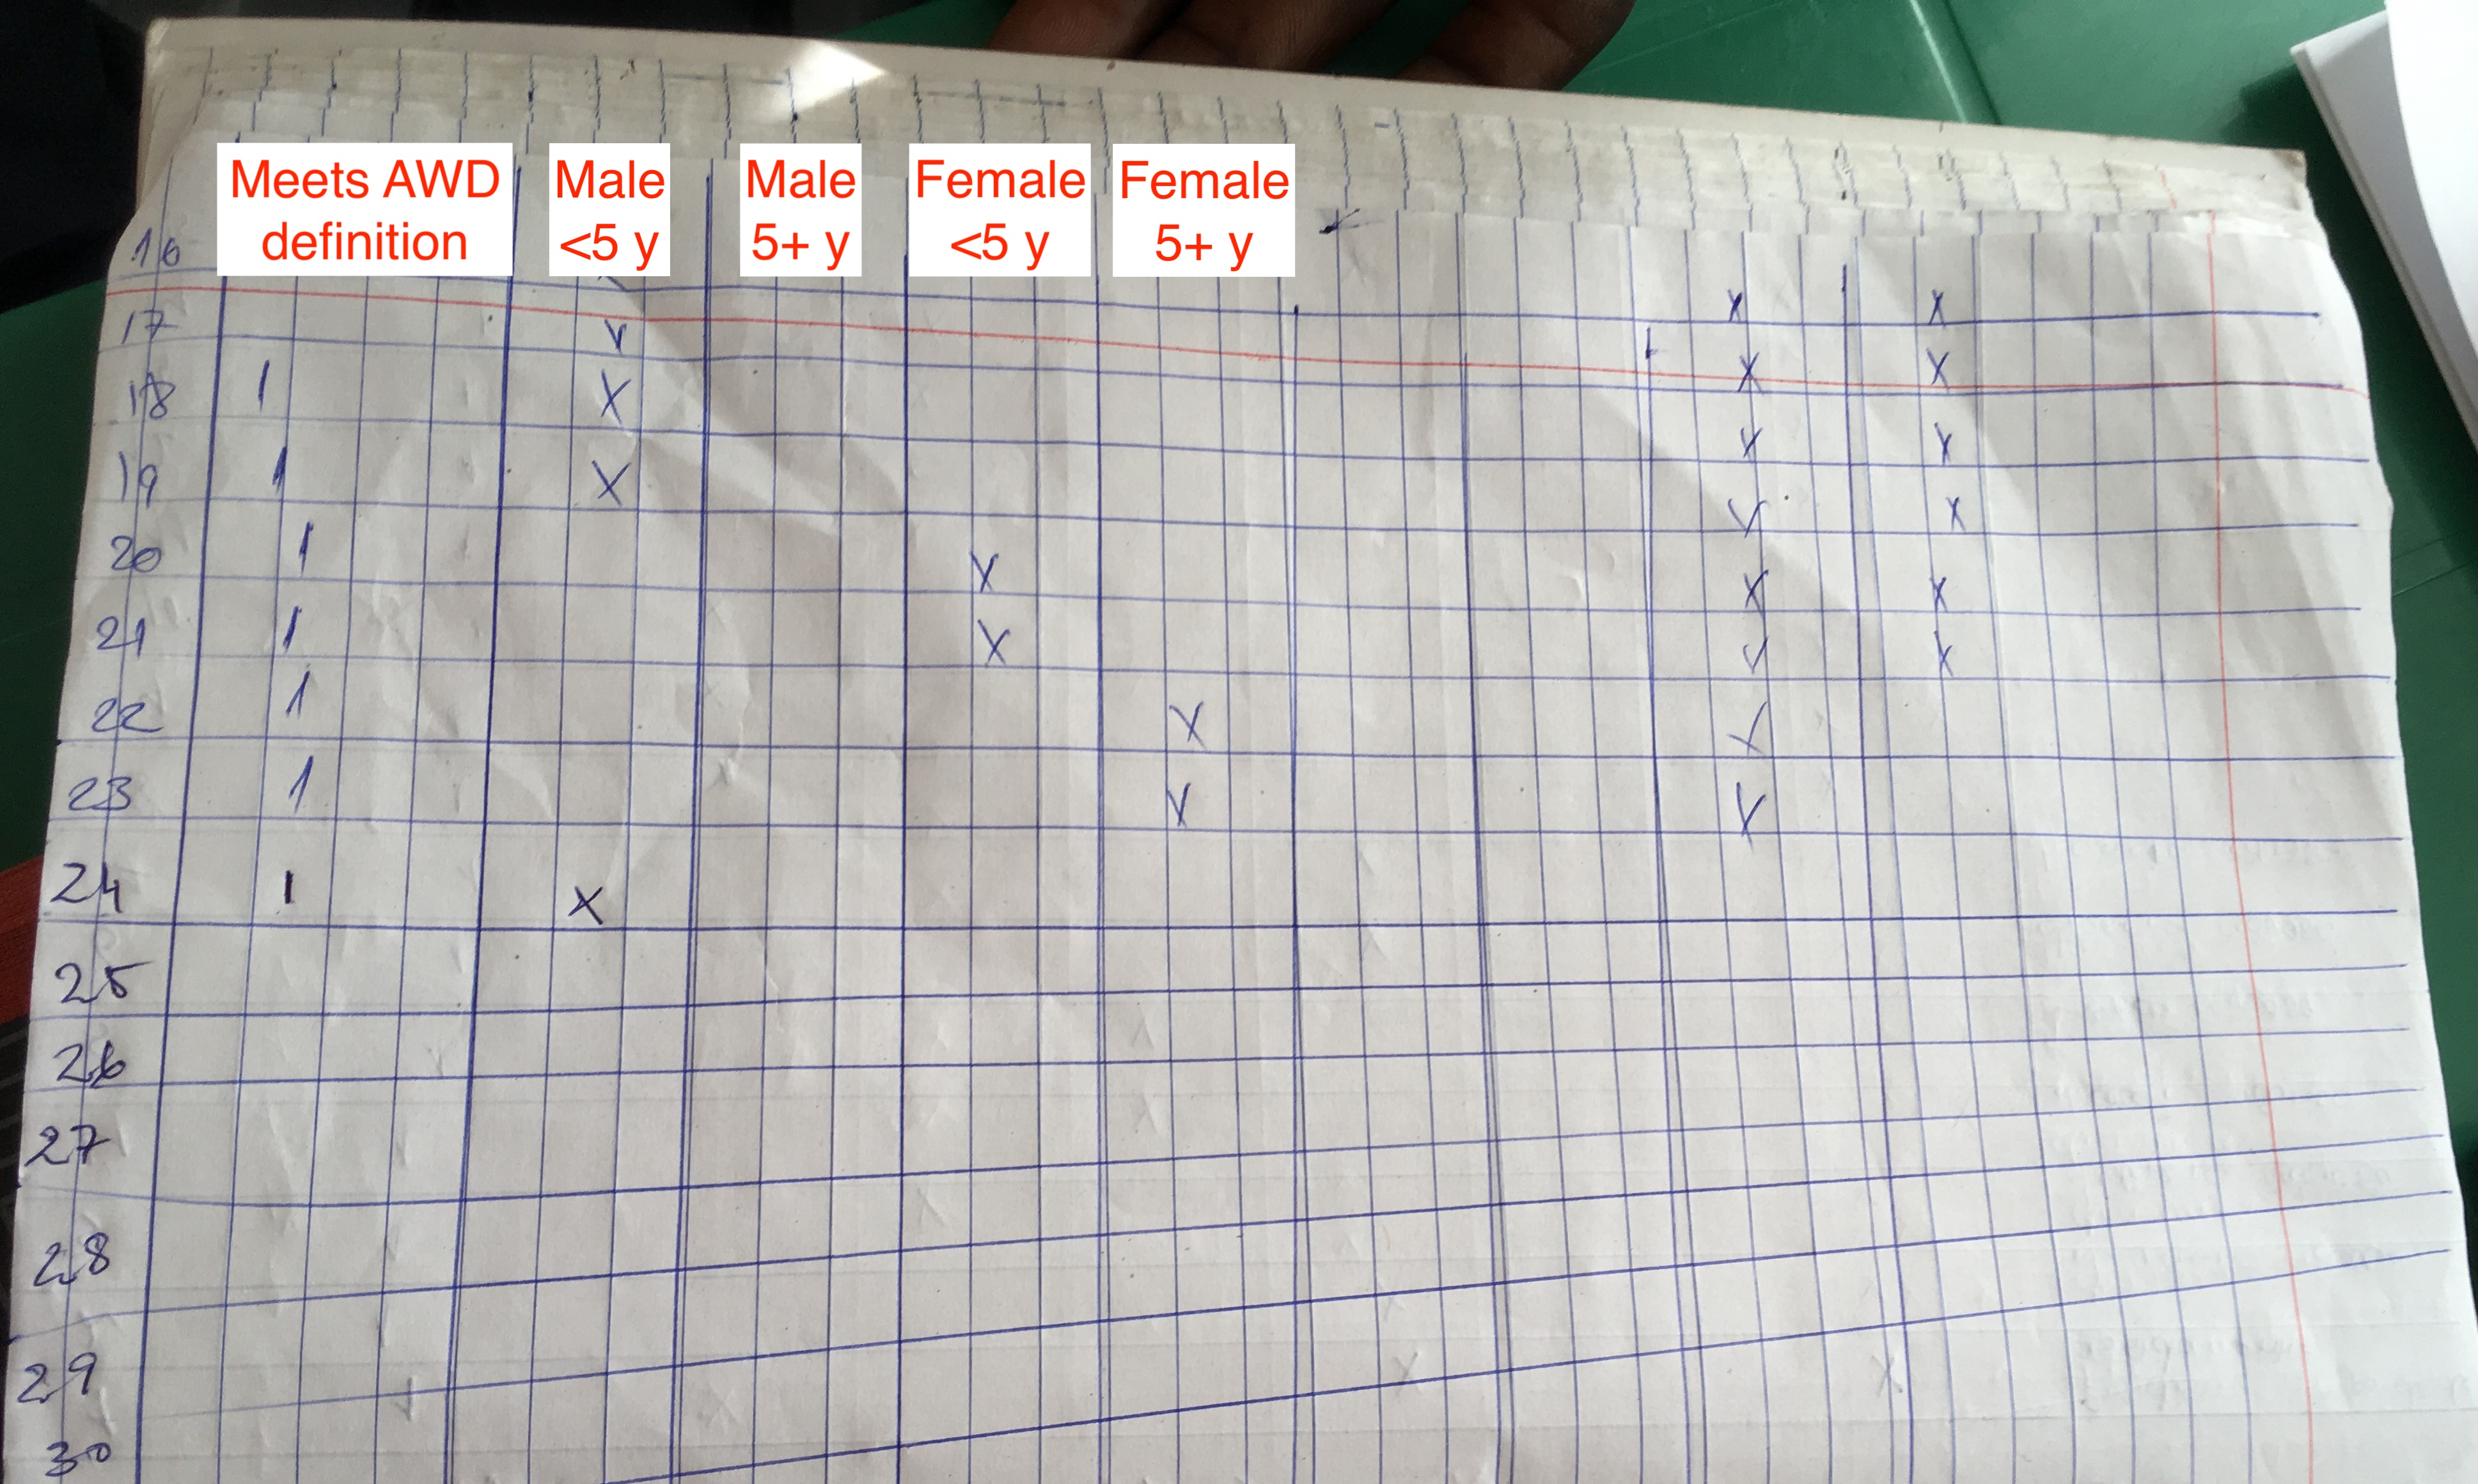 Meets AWD definition Male <5 y Male 5+ y Female <5 y Female 5+ y
16 x x
17 v x x
18 1 X x x
19 1 X v x
20 1 X x x
21 1 X v x
22 1 X v
23 1 v v
24 1 X
25
26
27
28
29
30